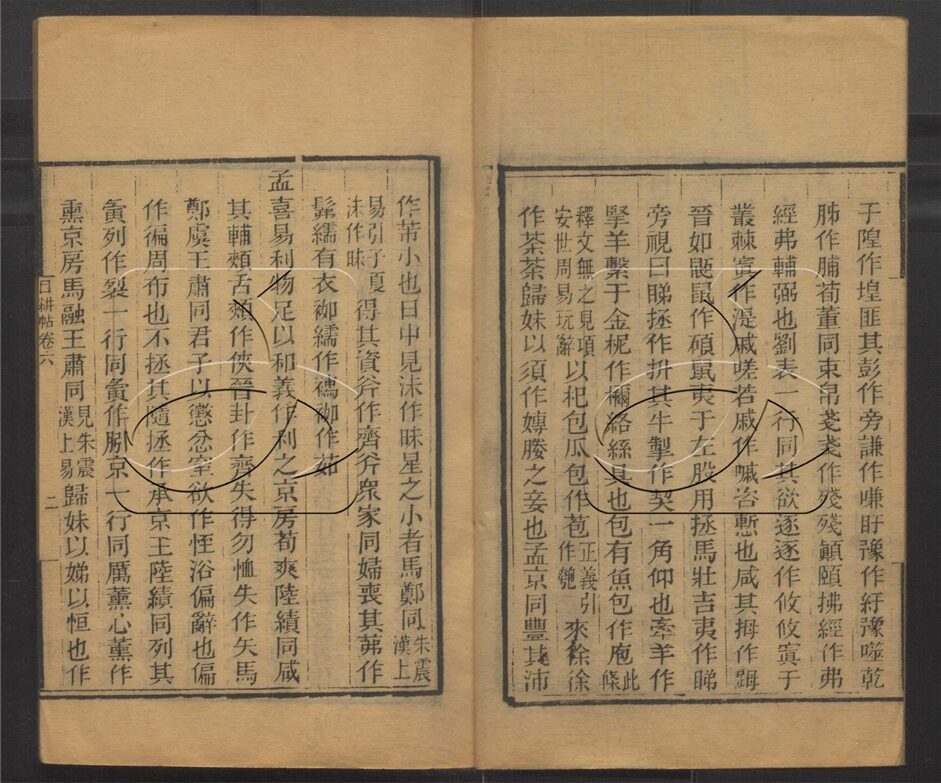 于隍作堭匪其彭作旁謙作嗛盱豫作紆豫噬乾
胏作脯荀董同束帛戔戔作殘殘顚頤拂經作弗
經弗輔弼也劉表一行同其欲逐逐作攸攸寘于
叢棘寘作湜戚嗟若戚作嘁咨慙也咸其拇作𨈭
晉如鼫鼠作碩鼠夷于左股用拯馬壯吉夷作睇
旁視曰睇拯作抍其牛掣作契一角仰也牽羊作
掔羊繫于金柅作檷絡絲具也包有魚包作庖此條
釋文無之見項安世周易玩辭以杞包瓜包作苞正義引作匏來徐徐
作荼荼歸妹以須作嬬媵之妾也孟京同豐其沛
作芾小也日中見沫作昧星之小者馬鄭同朱震漢上
易引子夏沫作昧得其資斧作齊斧衆家同婦喪其茀作
髴繻有衣袽繻作襦袽作茹
孟喜易利物足以和義作利之京房荀爽陸績同咸
其輔頰舌頰作俠晉卦作齊失得勿恤失作矢馬
鄭虞王肅同君子以懲忿窒欲作恎浴偏辭也偏
作徧周布也不拯其隨拯作承京王陸績同列其
夤列作裂一行同夤作䏖京一行同厲薰心薰作
熏京房馬融王肅同見朱震漢上易歸妹以娣以恒也作
日耕帖卷六
二